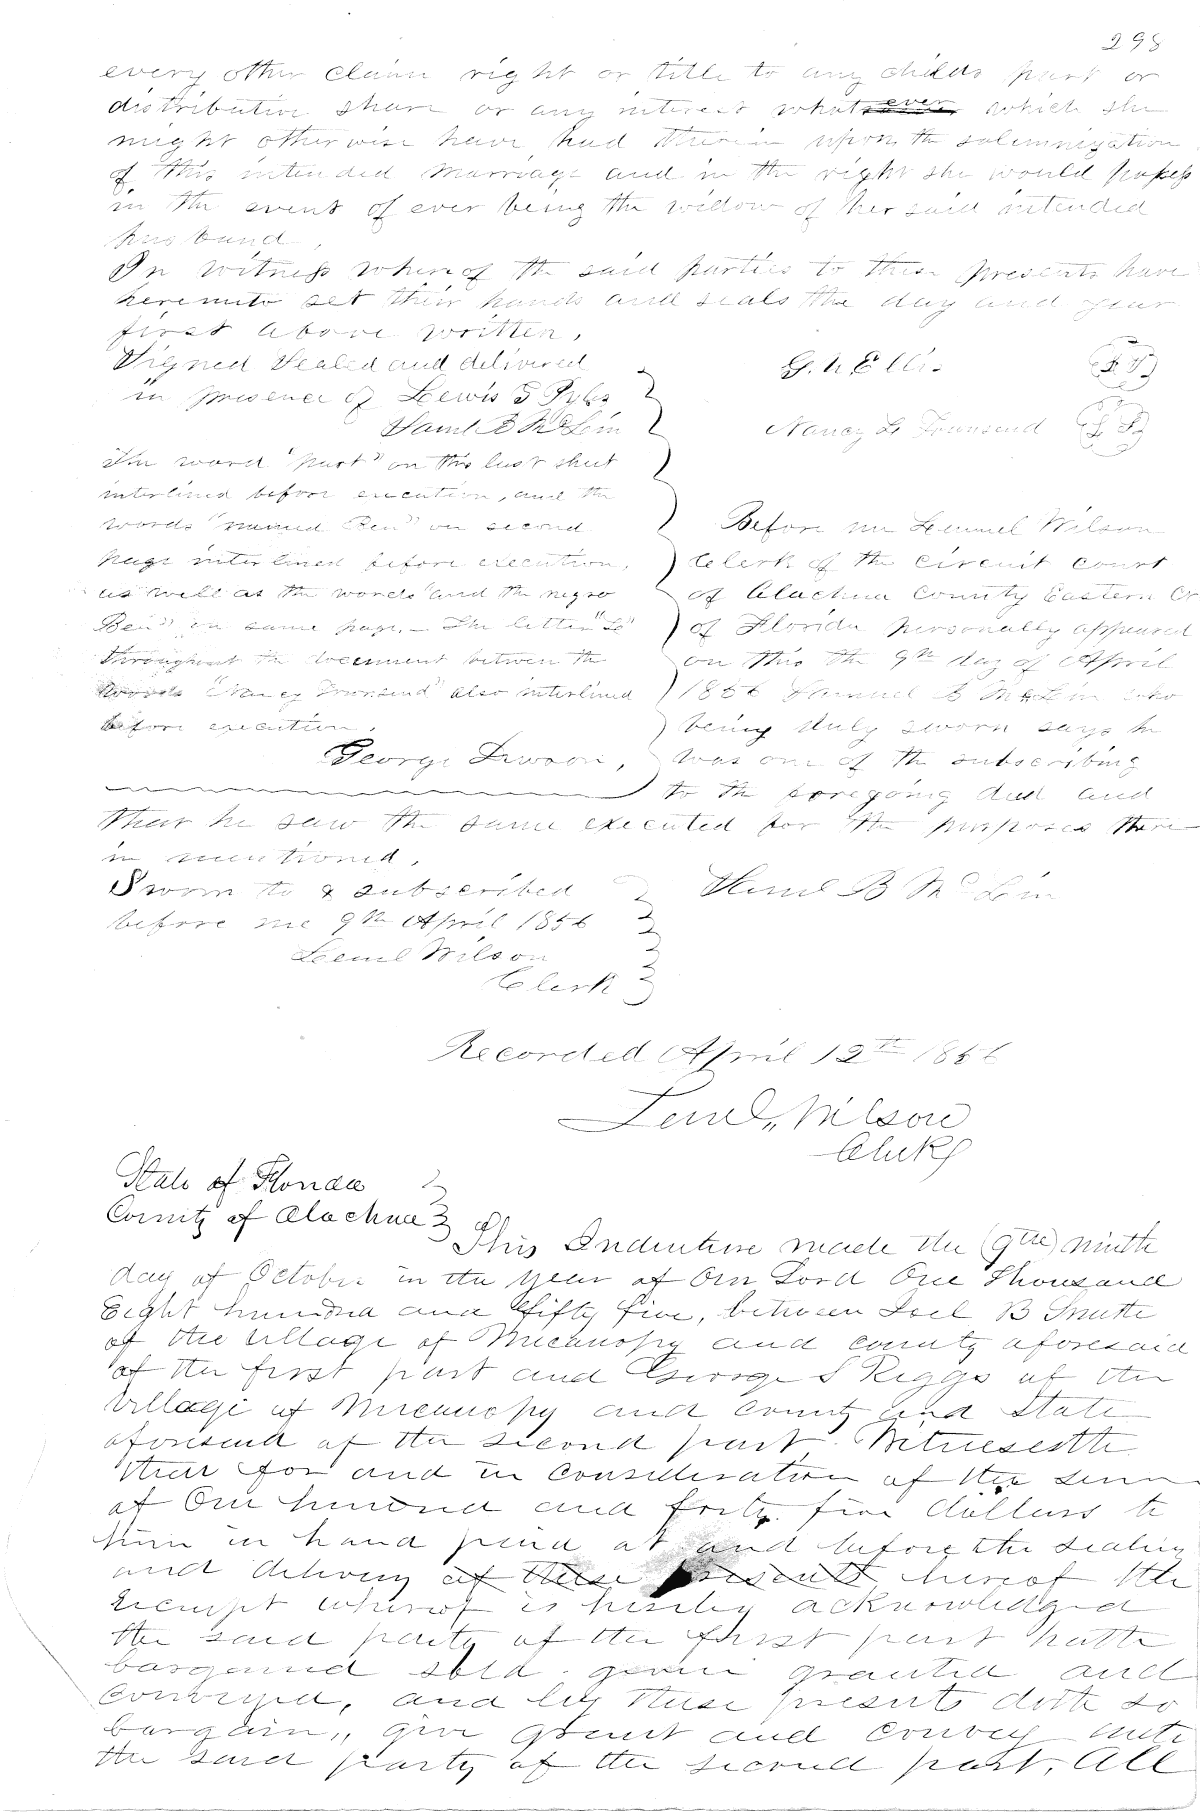 298
every other claim right or title to any childs part or
distributive share or any interest whatsoever which she
might otherwise have had therein upon the solemnization
of this intended marriage and in the right she would possess
in the event of ever being the widow of her said intended
husband.
In witness whereof the said parties to these presents have
hereunto set their hands and seals the day and year
first above written.
Signed Sealed and delivered
in presence of Lewis
Saml B McLin
G. h Ellis
L S
Nancy L Townsend
L S
The word "part" on this last sheet
interlined before execution, and the
words "named Ben" on second
page interlined before execution,
as well as the words "and the negro
Ben" on same page. – The letter "L"
throughout the document between the
words "Nancy Townsend" also interlined
before execution.
George
Before me Lemuel Wilson
Clerk of the circuit court
of Alachua County Eastern Ct
of Florida personally appeared
on this the 9th day of April
1856 Samuel B McLin who
being duly sworn says he
was one of the subscribing
to the foregoing deed and
that he saw the same executed for the purposes there
in mentioned.
Sworn to & subscribed
before me 9th April 1856
Leml Wilson
Clerk
Saml B McLin
Recorded April 12th 1856
Leml,, Wilson
Clerk
State of Florida
County of Alachua
This Indenture made the (9th) ninth
day of October in the year of Our Lord One Thousand
Eight hundred and fifty five, between Joel B Smith
of the village of Micanopy and county aforesaid
of the first part and George S Riggs of the
village of Micanopy and county and State
aforesaid of the second part. Witnesseth
that for and in consideration of the sum
of One hundred and forty five dollars to
him in hand paid at and before the sealing
and delivery of these presents hereof the
receipt whereof is hereby acknowledged
the said party of the first part hath
bargained sold given granted and
conveyed, and by these presents doth so
bargain,, give grant and convey unto
the said party of the second part, All